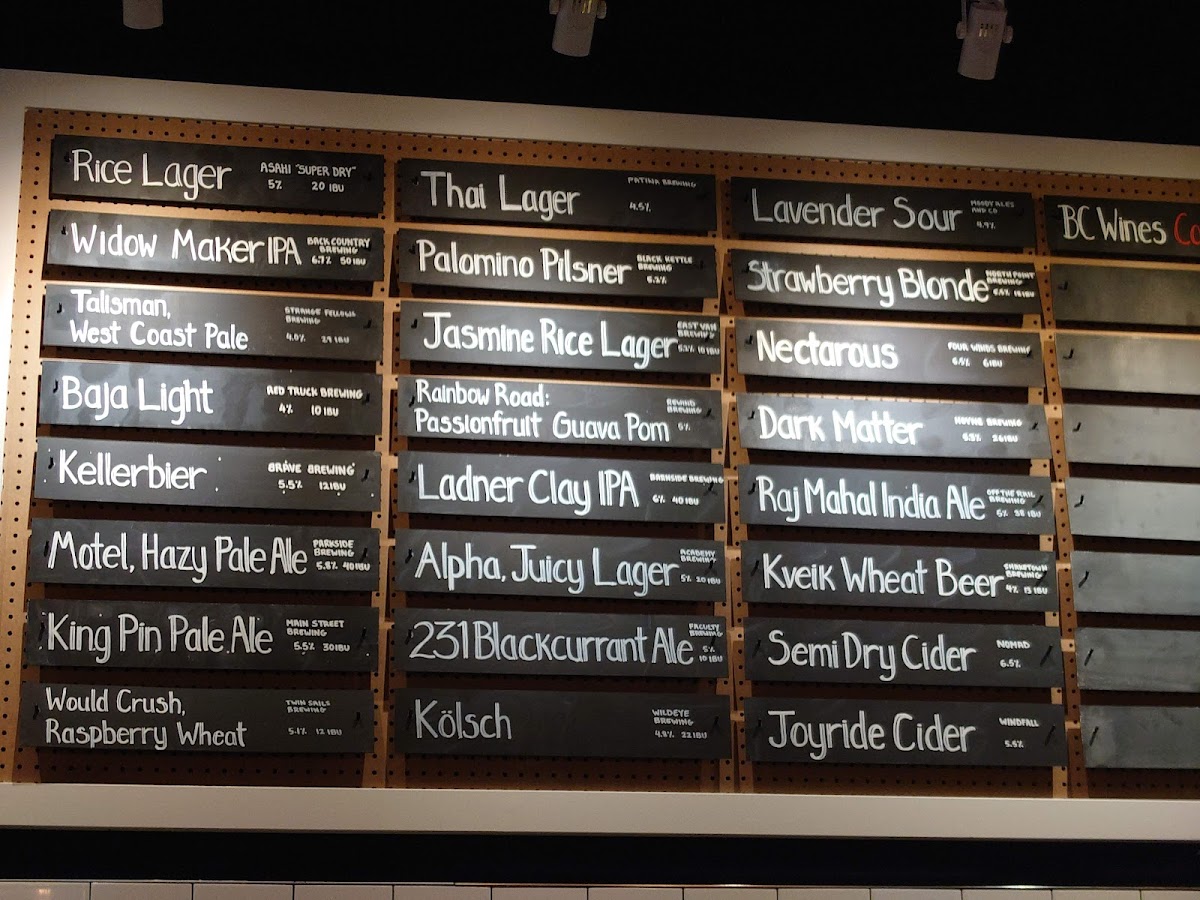 Rice Lager
ASAHI "SUPER DRY"
5% 20 IBU
Widow Maker IPA
BACK COUNTRY
BREWING
6.7% 50 IBU
Talisman,
West Coast Pale
STRANGE FELLOWS
BREWING
4.0% 29 IBU
Baja Light
RED TRUCK BREWING
4% 10 IBU
Kellerbier
BRAVE BREWING
5.5% 12 IBU
Motel, Hazy Pale Ale
PARKSIDE
BREWING
5.8% 40 IBU
King Pin Pale Ale
MAIN STREET
BREWING
5.5% 30 IBU
Would Crush,
Raspberry Wheat
TWIN SAILS
BREWING
5.1% 12 IBU
Thai Lager
PATINA BREWING
4.5%
Palomino Pilsner
BLACK KETTLE
BREWING
Jasmine Rice Lager
EAST VAN
BREWING
Rainbow Road:
Passionfruit Guava Pom
REWIND
BREWING
Ladner Clay IPA
BARNSIDE BREWING
6% 40 IBU
Alpha, Juicy Lager
ACADEMY
BREWING
5% 20 IBU
231 Blackcurrant Ale
FACULTY
BREWING
5%
10 IBU
Kölsch
WILDEYE
BREWING
4.8% 22 IBU
Lavender Sour
MOODY ALES
AND CO
4.9%
Strawberry Blonde
NORTH POINT
BREWING
Nectarous
FOUR WINDS BREWING
5.5% 6 IBU
Dark Matter
HOYNE BREWING
5.3% 26 IBU
Raj Mahal India Ale
OFF THE RAIL
BREWING
Kveik Wheat Beer
SHAKETOWN
BREWING
4% 15 IBU
Semi Dry Cider
NOMAD
6.5%
Joyride Cider
WINDFALL
5.5%
BC Wines